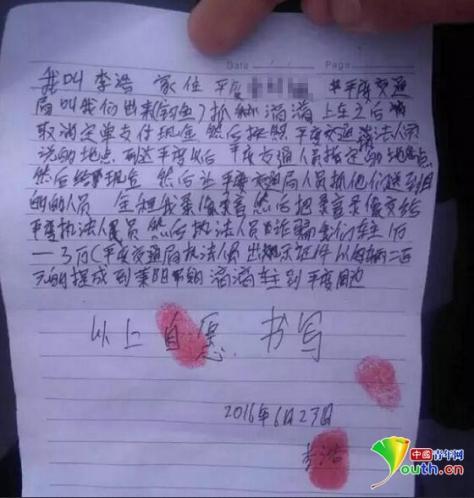 Date
Page
我叫李浩 家住 平度 平度交通
局叫我们出来(钓鱼)抓 滴滴 上车之后
取消定单支付现金 然后按照平度交通 法人员
说的地点 到达平度以后 平度交通人员指定的地点
然后给 现金 然后让平度交通局人员抓他们
的人员 全程我录像录音 然后把录音录像交给
平度执法人员 然后执法人员 诈骗 车主1万
一3万(平度交通局执法人员出示证件 以每辆二百
元的提成 到莱阳 滴滴车主到平度周边
以上自愿 书写
2016年6月23日
李浩
中國青年网
youth.cn